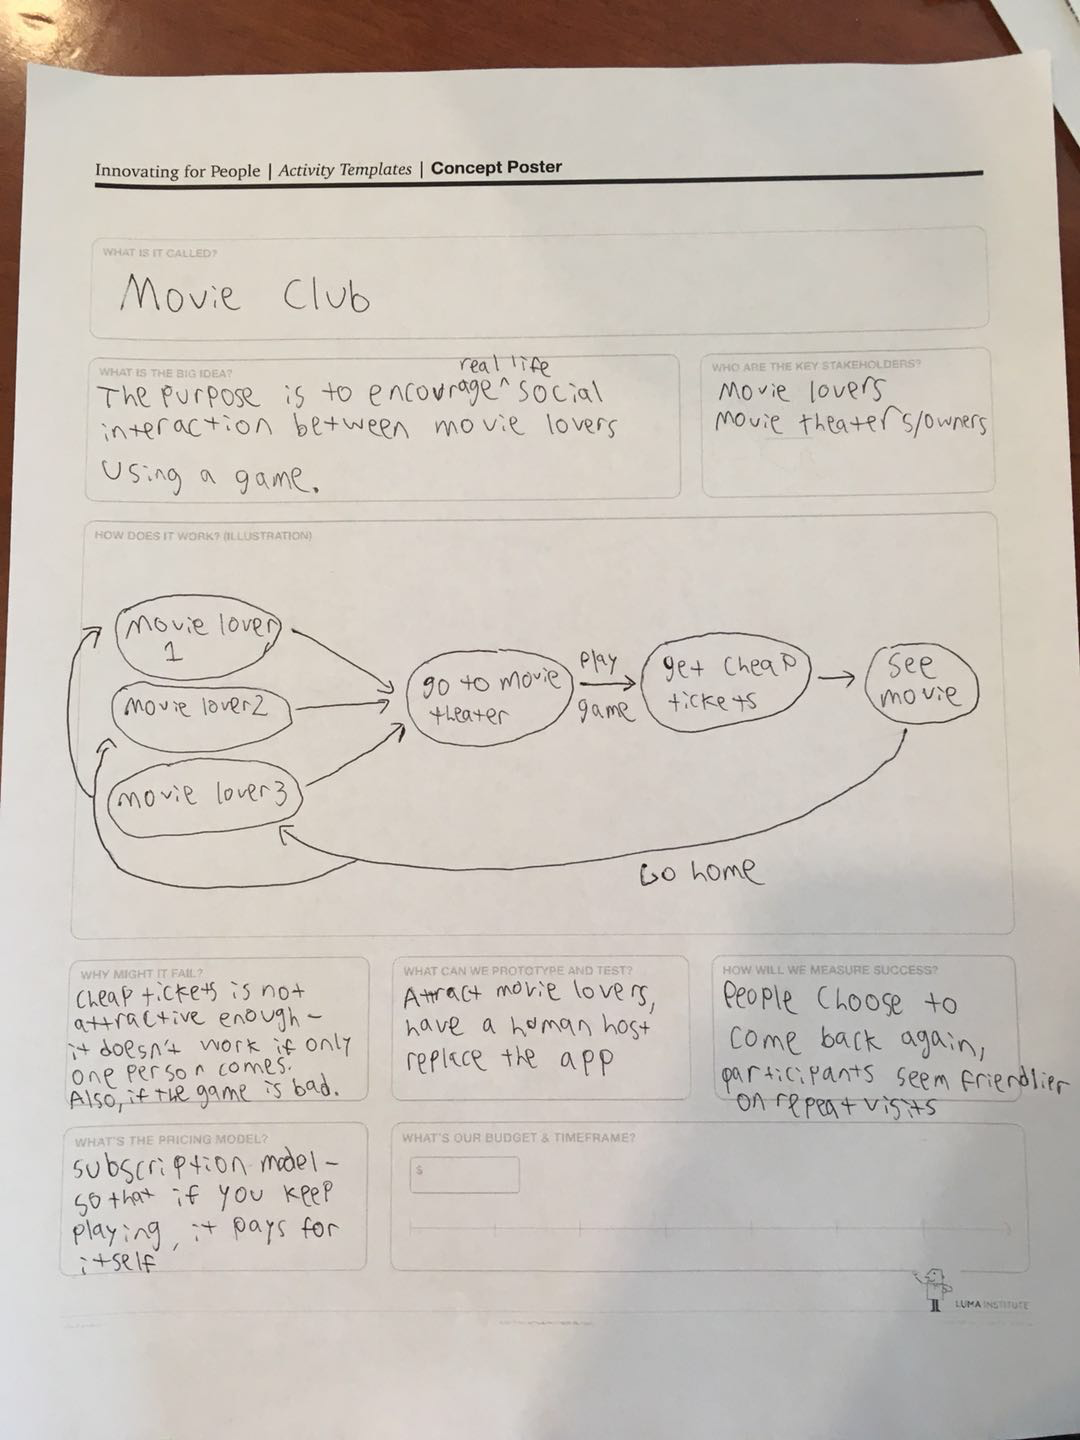 Innovating for People | Activity Templates | Concept Poster
WHAT IS IT CALLED?
Movie Club
WHAT IS THE BIG IDEA?
real life
The purpose is to encourage ^ social
interaction between movie lovers
using a game.
WHO ARE THE KEY STAKEHOLDERS?
Movie lovers
movie theaters/owners
HOW DOES IT WORK? (ILLUSTRATION)
movie lover
1
movie lover2
movie lover3
go to movie
theater
play
game
get cheap
tickets
see
movie
Go home
WHY MIGHT IT FAIL?
cheap tickets is not
attractive enough -
it doesn't work if only
one person comes.
Also, if the game is bad.
WHAT CAN WE PROTOTYPE AND TEST?
Attract movie lovers,
have a human host
replace the app
HOW WILL WE MEASURE SUCCESS?
People choose to
come back again,
participants seem friendlier
on repeat visits
WHAT'S THE PRICING MODEL?
subscription model -
so that if you keep
playing, it pays for
itself
WHAT'S OUR BUDGET & TIMEFRAME?
$
LUMA INSTITUTE